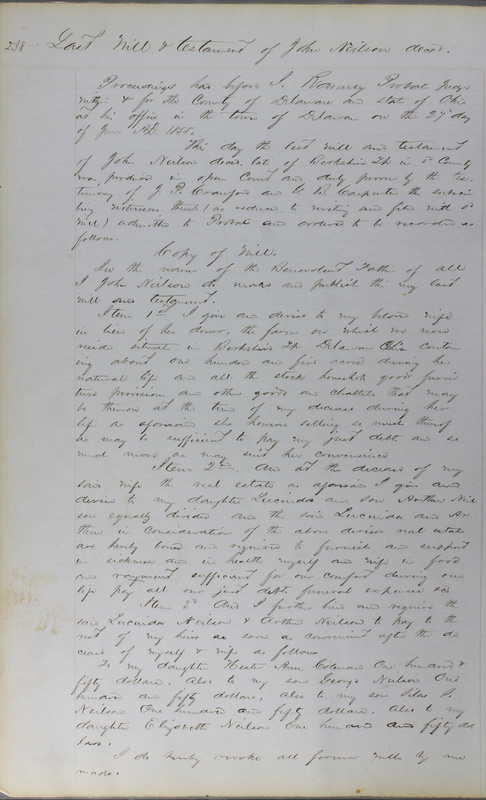 238 Last Will & testament of John Neilson decd.
Proceedings had before I. Ranney Probate Judge
within & for the County of Delaware and State of Ohio
at his office in the town of Delaware on the 27th day
of June AD. 1858.
This day the last will and testament
of John Neilson decd. late of Berkshire Tp. in sd County
was produced in open Court and duly proven by the tes-
timony of J. R. Crawford and G. B. Carpenter the subscri
bing witnesses thereto (as reduced to writing and filed with sd
Will) admitted to Probate and ordered to be recorded as
follows.
Copy of Will.
In the name of the Benevolent Father of all
I John Neilson do make and publish this my last
will and testament.
Item 1st I give and devise to my beloved wife
in lieu of her dower, the farm on which we now
reside situate in Berkshire Tp. Delaware Ohio contain
ing about one hundred and five acres during her
natural life and all the stock household goods furni
ture provision and other goods and chattels that may
be thereon at the time of my decease during her
life as aforesaid she however selling so much thereof
as may be sufficient to pay my just debts and as
much more as may suit her convenience
Item 2nd. And at the decease of my
said wife the real estate as aforesaid I give and
devise to my daughter Lucinda and son Arthur Neil
son equally divided and the said Lucinda and Ar
thur in consideration of the above devised real estate
are hereby bound and required to furnish and support
in sickness and in health myself and wife in food
and raiment sufficient for our comfort during our
life pay all our just debts funeral expenses &c
Item 3d And I further bind and require the
said Lucinda Neilson & Arthur Neilson to pay to the
rest of my heirs as soon as convenient after the de
cease of myself & wife as follows
To my daughter Hester Ann Coleman One hundred &
fifty dollars. Also to my son George Neilson One
hundred and fifty dollars, also to my son Silas S.
Neilson One hundred and fifty dollars. Also to my
daughter Elizabeth Neilson One hundred and fifty dol
lars.
I do hereby revoke all former wills by me
made.